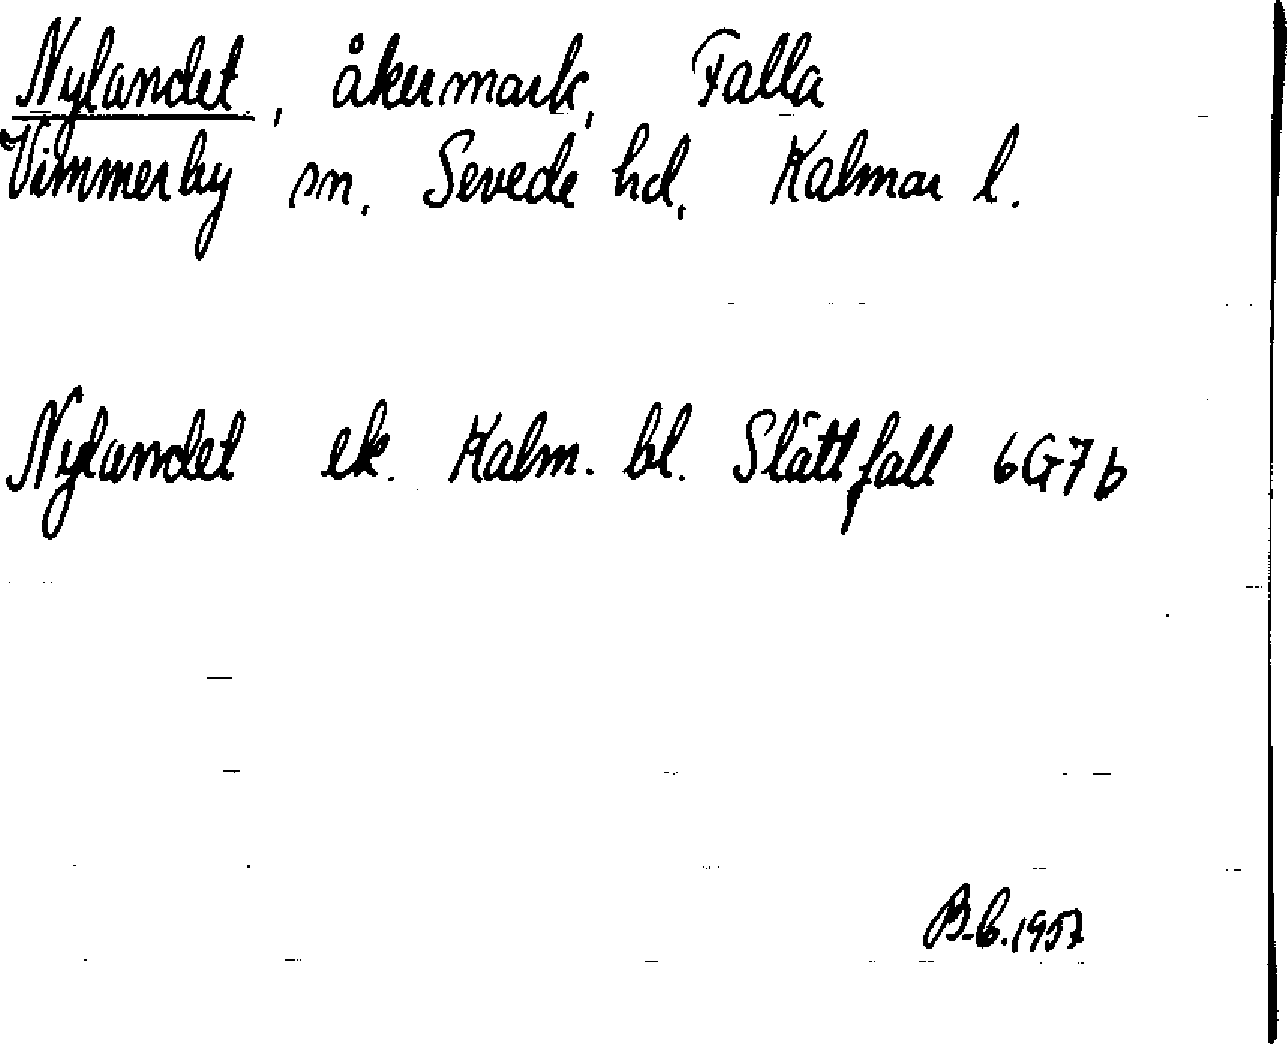 Nylandet, åkermark, Falla
Vimmerby sn, Sevede hd, Kalmar l.
Nylandet ek. Kalm. bl. Slättfall 6G7b
B-b. 1957